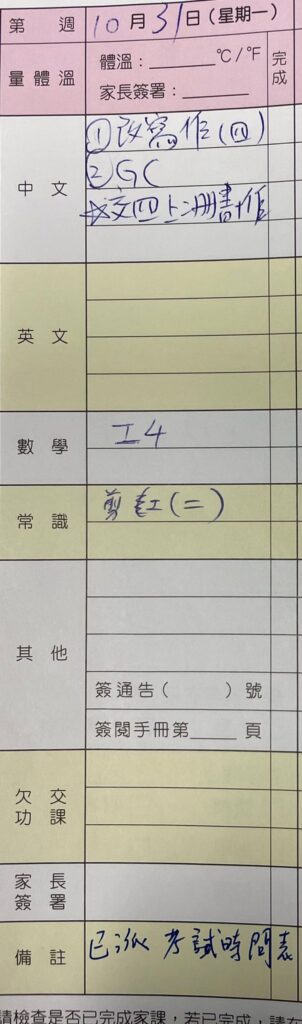 第 週 10月31日(星期一)
量體溫 體溫：______℃/℉ 完成
家長簽署：______
中文 ①改寫作(四)
②GC
*交四上冊書+作
英文
數學 工4
常識 剪紅(二)
其他
簽通告( )號
簽閱手冊第____頁
欠交功課
家長簽署
備註 已派考試時間表
請檢查是否已完成家課，若已完成，請在